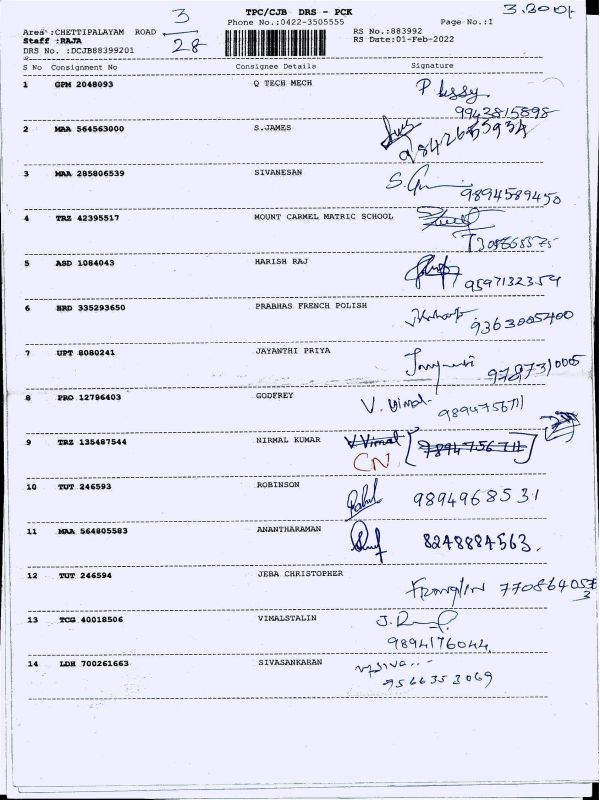 TPC/CJB DRS - PCK
3.300/-
3
28
Phone No.:0422-3505555
Page No.:1
Area :CHETTIPALAYAM ROAD
RS No.:883992
Staff :RAJA
RS Date:01-Feb-2022
DRS No. :DCJB88399201
S No Consignment No Consignee Details Signature
1 GPM 2048093 Q TECH MECH
9942815898
2 MAA 564563000 S.JAMES
3 MAA 285806539 SIVANESAN
9894589450
4 TRZ 42395517 MOUNT CARMEL MATRIC SCHOOL
5 ASD 1084043 HARISH RAJ
9597132354
6 HRD 335293650 PRABHAS FRENCH POLISH
9363005400
7 UPT 8080241 JAYANTHI PRIYA
8 PRO 12796403 GODFREY V. Vimal
9894756711
9 TRZ 135487544 NIRMAL KUMAR V. Vimal [9894756711]
CN
10 TUT 246593 ROBINSON
9894968531
11 MAA 564805583 ANANTHARAMAN
8248884563.
12 TUT 246594 JEBA CHRISTOPHER
13 TCG 40018506 VIMALSTALIN
9894176044
14 LDH 700261663 SIVASANKARAN
9566353069